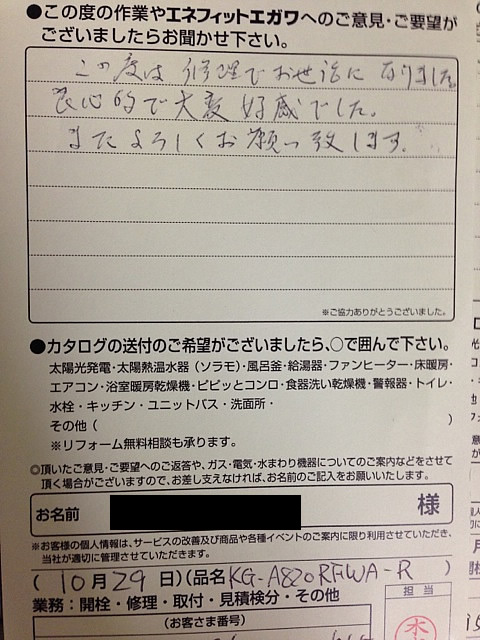 ●この度の作業やエネフィットエガワへのご意見・ご要望が
ございましたらお聞かせ下さい。
この度は修理でお世話になりました。
良心的で大変好感でした。
またよろしくお願い致します。
※ご協力ありがとうございました。
●カタログの送付のご希望がございましたら、○で囲んで下さい。
太陽光発電・太陽熱温水器（ソラモ）・風呂釜・給湯器・ファンヒーター・床暖房・
エアコン・浴室暖房乾燥機・ピピッとコンロ・食器洗い乾燥機・警報器・トイレ・
水栓・キッチン・ユニットバス・洗面所・
その他（ ）
※リフォーム無料相談も承ります。
◎頂いたご意見・ご要望へのご返答や、ガス・電気・水まわり機器についてのご案内などをさせて
頂く場合がございますので、お差し支えなければ、お名前のご記入をお願いいたします。
お名前 様
※お客様の個人情報は、サービスの改善及び商品や各種イベントのご案内に限り利用させていただき、
当社が適切に管理させていただきます。
（10月29日）（品名KG-A820RFWA-R）
業務：開栓・修理・取付・見積検分・その他
担当
（お客さま番号）
木